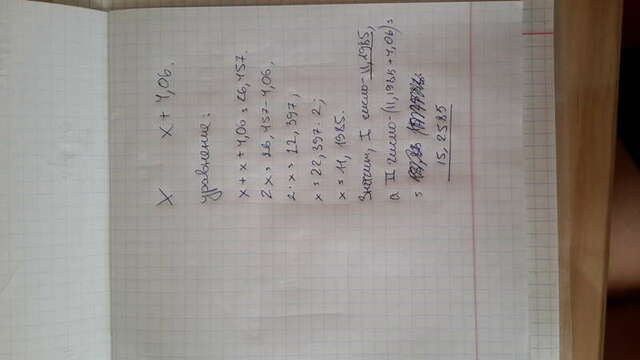 x x + 4,06.
уравнение:
x + x + 4,06 = 26,457.
2x = 26,457 - 4,06,
2·x = 22,397,
x = 22,397 : 2;
x = 11,1985.
Значит, I число - 11,1985,
а II число - (11,1985 + 4,06) =
=
15,2585